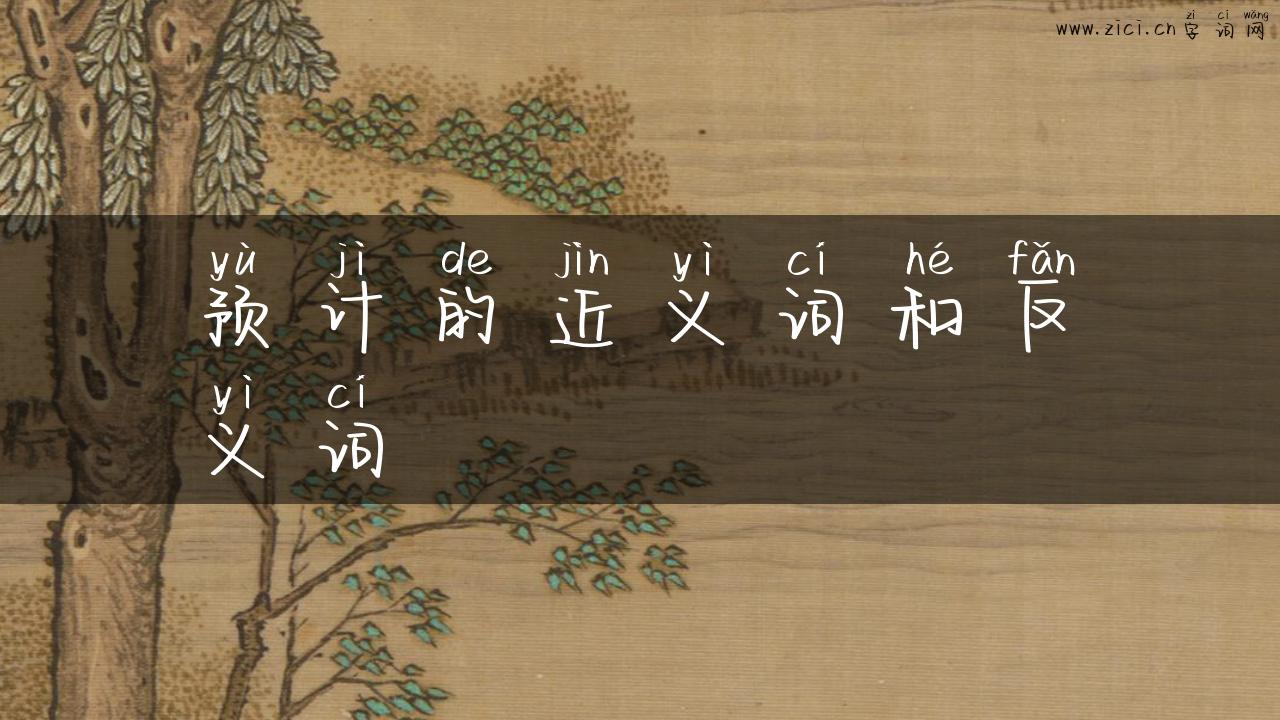 zì cí wǎng
www.zici.cn 字 词 网
yù jì de jìn yì cí hé fǎn
预 计 的 近 义 词 和 反
yì cí
义 词